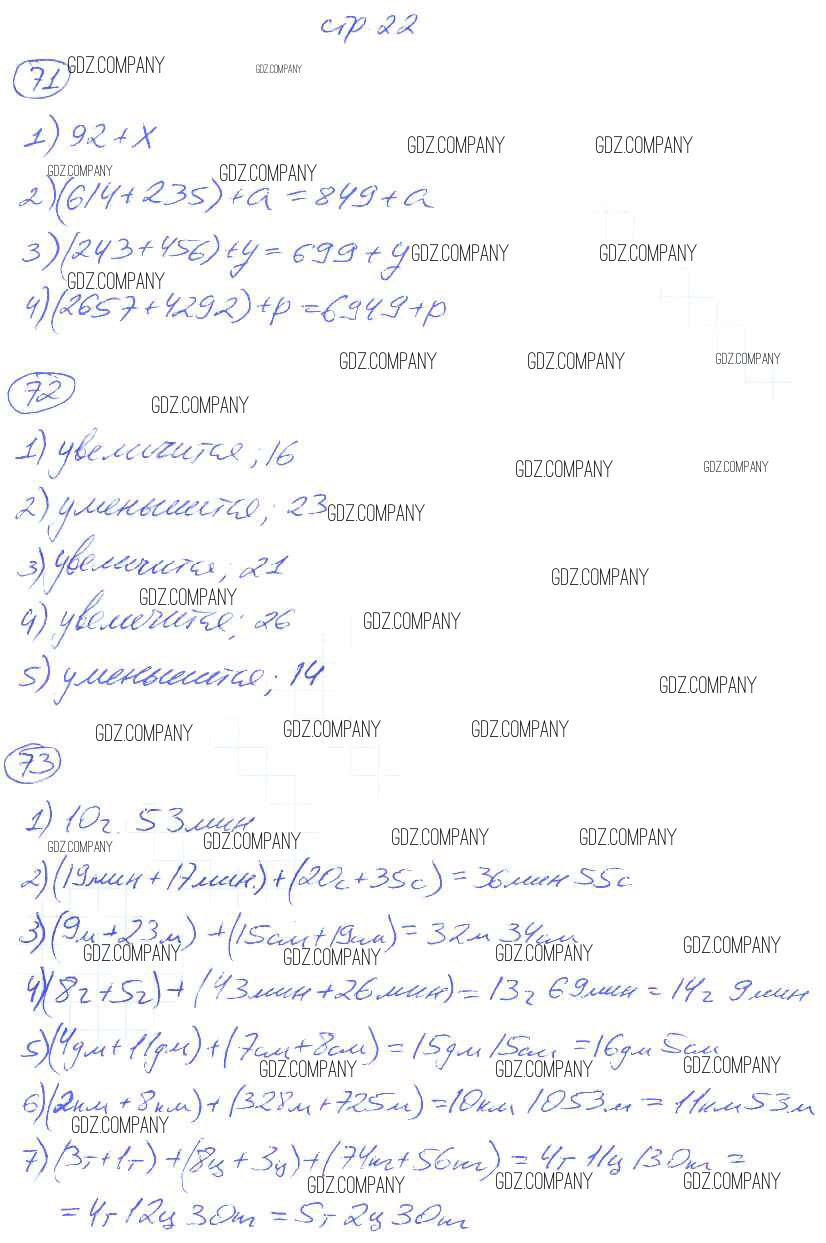 стр. 22
71 GDZ.COMPANY GDZ.COMPANY
1) 92 + x
GDZ.COMPANY GDZ.COMPANY
GDZ.COMPANY GDZ.COMPANY
2) (614 + 235) + a = 849 + a
3) (243 + 456) + y = 699 + y GDZ.COMPANY GDZ.COMPANY
GDZ.COMPANY
4) (2657 + 4292) + p = 6949 + p
GDZ.COMPANY GDZ.COMPANY GDZ.COMPANY
72
GDZ.COMPANY
1) увеличится; 16
GDZ.COMPANY GDZ.COMPANY
2) уменьшится; 23 GDZ.COMPANY
3) увеличится; 21
GDZ.COMPANY
GDZ.COMPANY
4) увеличится; 26
GDZ.COMPANY
5) уменьшится; 14
GDZ.COMPANY
GDZ.COMPANY GDZ.COMPANY GDZ.COMPANY
73
1) 10г. 53мин
GDZ.COMPANY GDZ.COMPANY GDZ.COMPANY GDZ.COMPANY
2) (19мин + 17мин.) + (20с + 35с) = 36мин 55с
3) (9м + 23м) + (15см + 19см) = 32м 34см
GDZ.COMPANY GDZ.COMPANY GDZ.COMPANY GDZ.COMPANY
4) (8г + 5г) + (43мин + 26мин) = 13г 69мин = 14г 9мин
5) (4дм + 11дм) + (7см + 8см) = 15дм 15см = 16дм 5см
GDZ.COMPANY GDZ.COMPANY GDZ.COMPANY
6) (2км + 8км) + (328м + 725м) = 10км 1053м = 11км 53м
GDZ.COMPANY
7) (3т + 1т) + (8ц + 3ц) + (74кг + 56кг) = 4т 11ц 130кг =
GDZ.COMPANY GDZ.COMPANY GDZ.COMPANY
= 4т 12ц 30кг = 5т 2ц 30кг